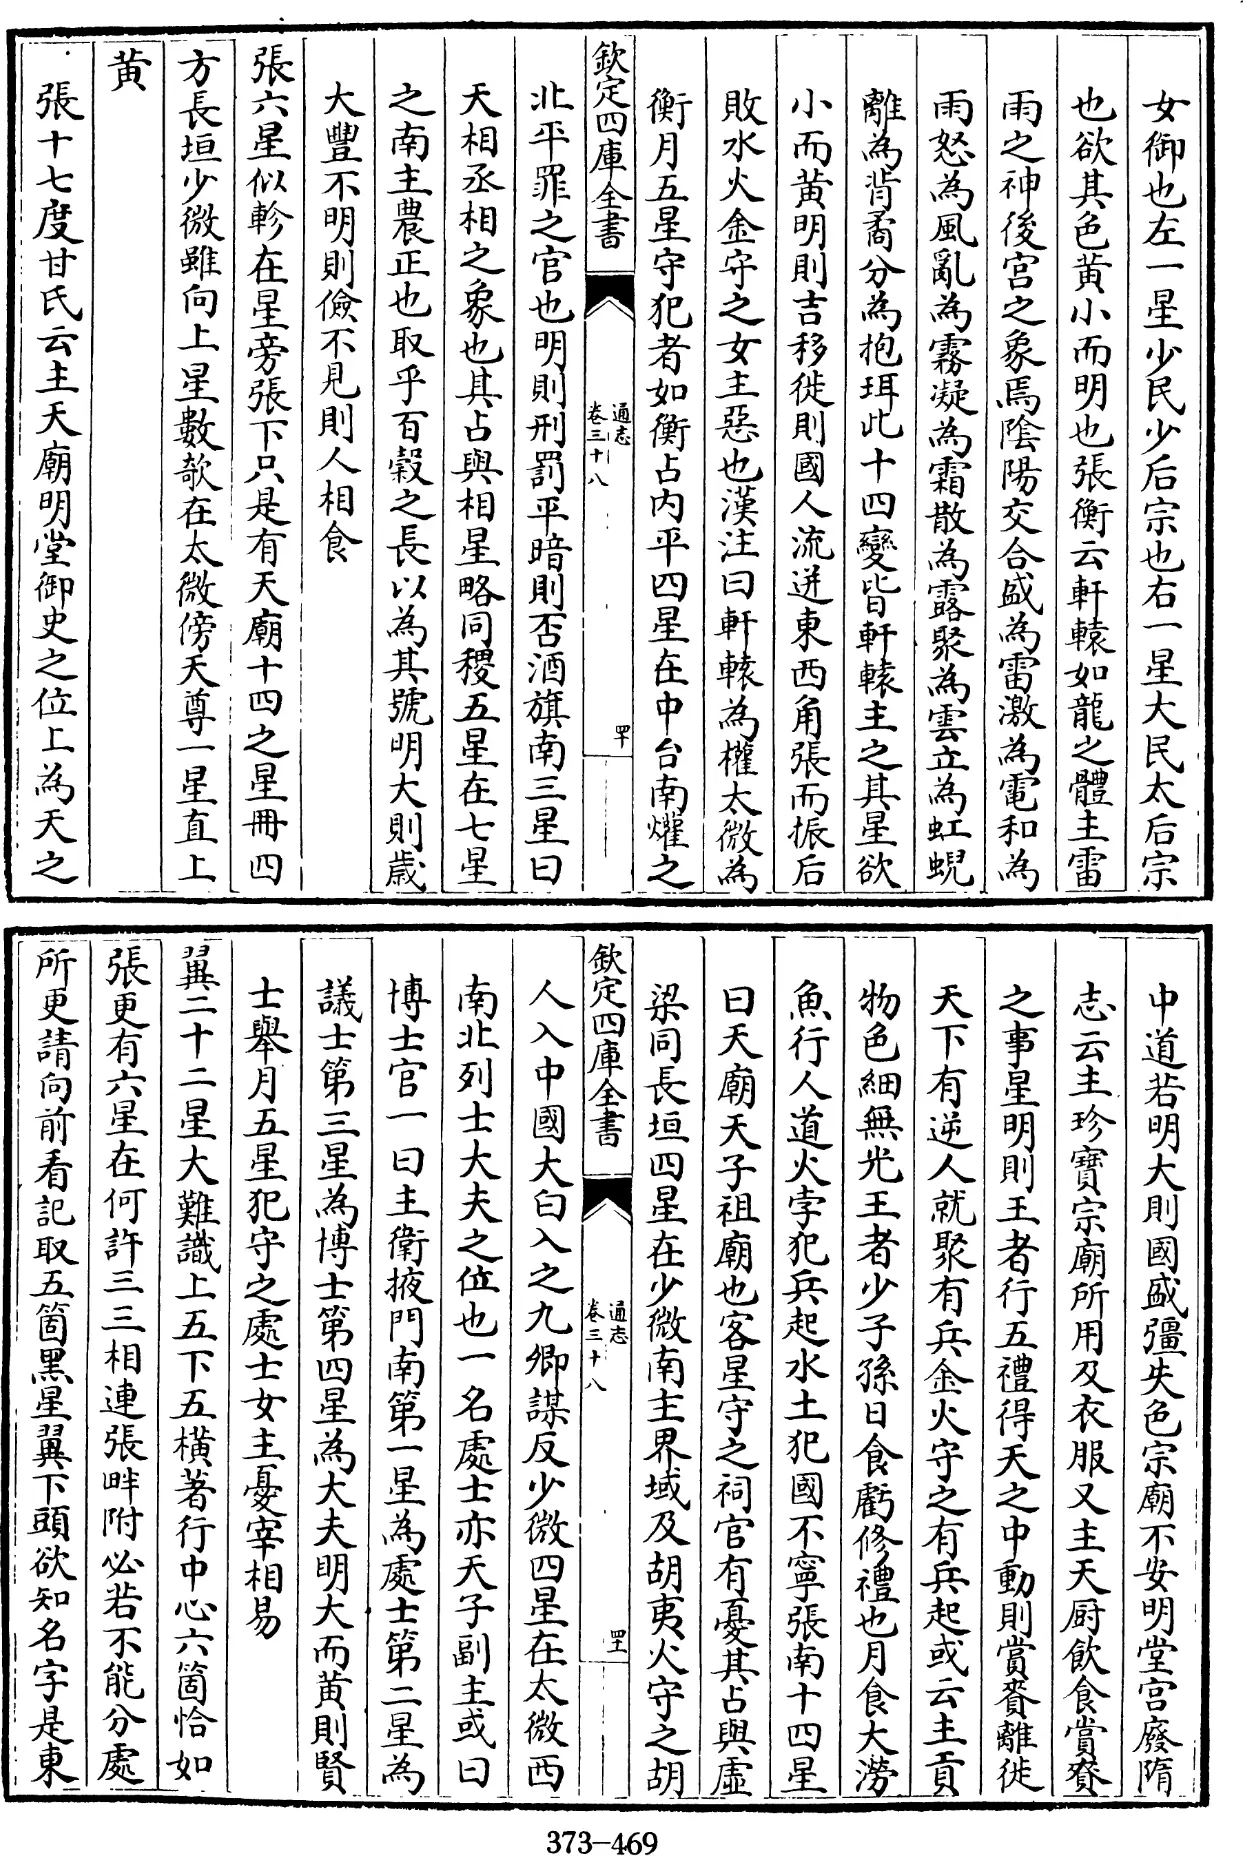 女御也左一星少民少后宗也右一星大民太后宗
也欲其色黄小而明也張衡云軒轅如龍之體主雷
雨之神後宫之象焉陰陽交合盛為雷激為電和為
雨怒為風亂為霧凝為霜散為露聚為雲立為虹蜺
離為背矞分為抱珥此十四變皆軒轅主之其星欲
小而黄明則吉移徙則國人流迸東西角張而振后
敗水火金守之女主惡也漢注曰軒轅為權太微為
衡月五星守犯者如衡占内平四星在中台南爟之
欽定四庫全書
通志
卷三十八
四十
北平罪之官也明則刑罰平暗則否酒旗南三星曰
天相丞相之象也其占與相星略同稷五星在七星
之南主農正也取乎百穀之長以為其號明大則歳
大豐不明則儉不見則人相食
張六星似軫在星旁張下只是有天廟十四之星冊四
方長垣少微雖向上星數欹在太微傍天尊一星直上
黄
張十七度甘氏云主天廟明堂御史之位上為天之
中道若明大則國盛彊失色宗廟不安明堂宫廢隋
志云主珍寶宗廟所用及衣服又主天厨飲食賞賚
之事星明則王者行五禮得天之中動則賞賚離徙
天下有逆人就聚有兵金火守之有兵起或云主貢
物色細無光王者少子孫日食虧修禮也月食大澇
魚行人道火孛犯兵起水土犯國不寧張南十四星
曰天廟天子祖廟也客星守之祠官有憂其占與虚
梁同長垣四星在少微南主界域及胡夷火守之胡
欽定四庫全書
通志
卷三十八
四十一
人入中國大白入之九卿謀反少微四星在太微西
南北列士大夫之位也一名處士亦天子副主或曰
博士官一曰主衛掖門南第一星為處士第二星為
議士第三星為博士第四星為大夫明大而黄則賢
士舉月五星犯守之處士女主憂宰相易
翼二十二星大難識上五下五横著行中心六箇恰如
張更有六星在何許三三相連張畔附必若不能分處
所更請向前看記取五箇黑星翼下頭欲知名字是東
373-469